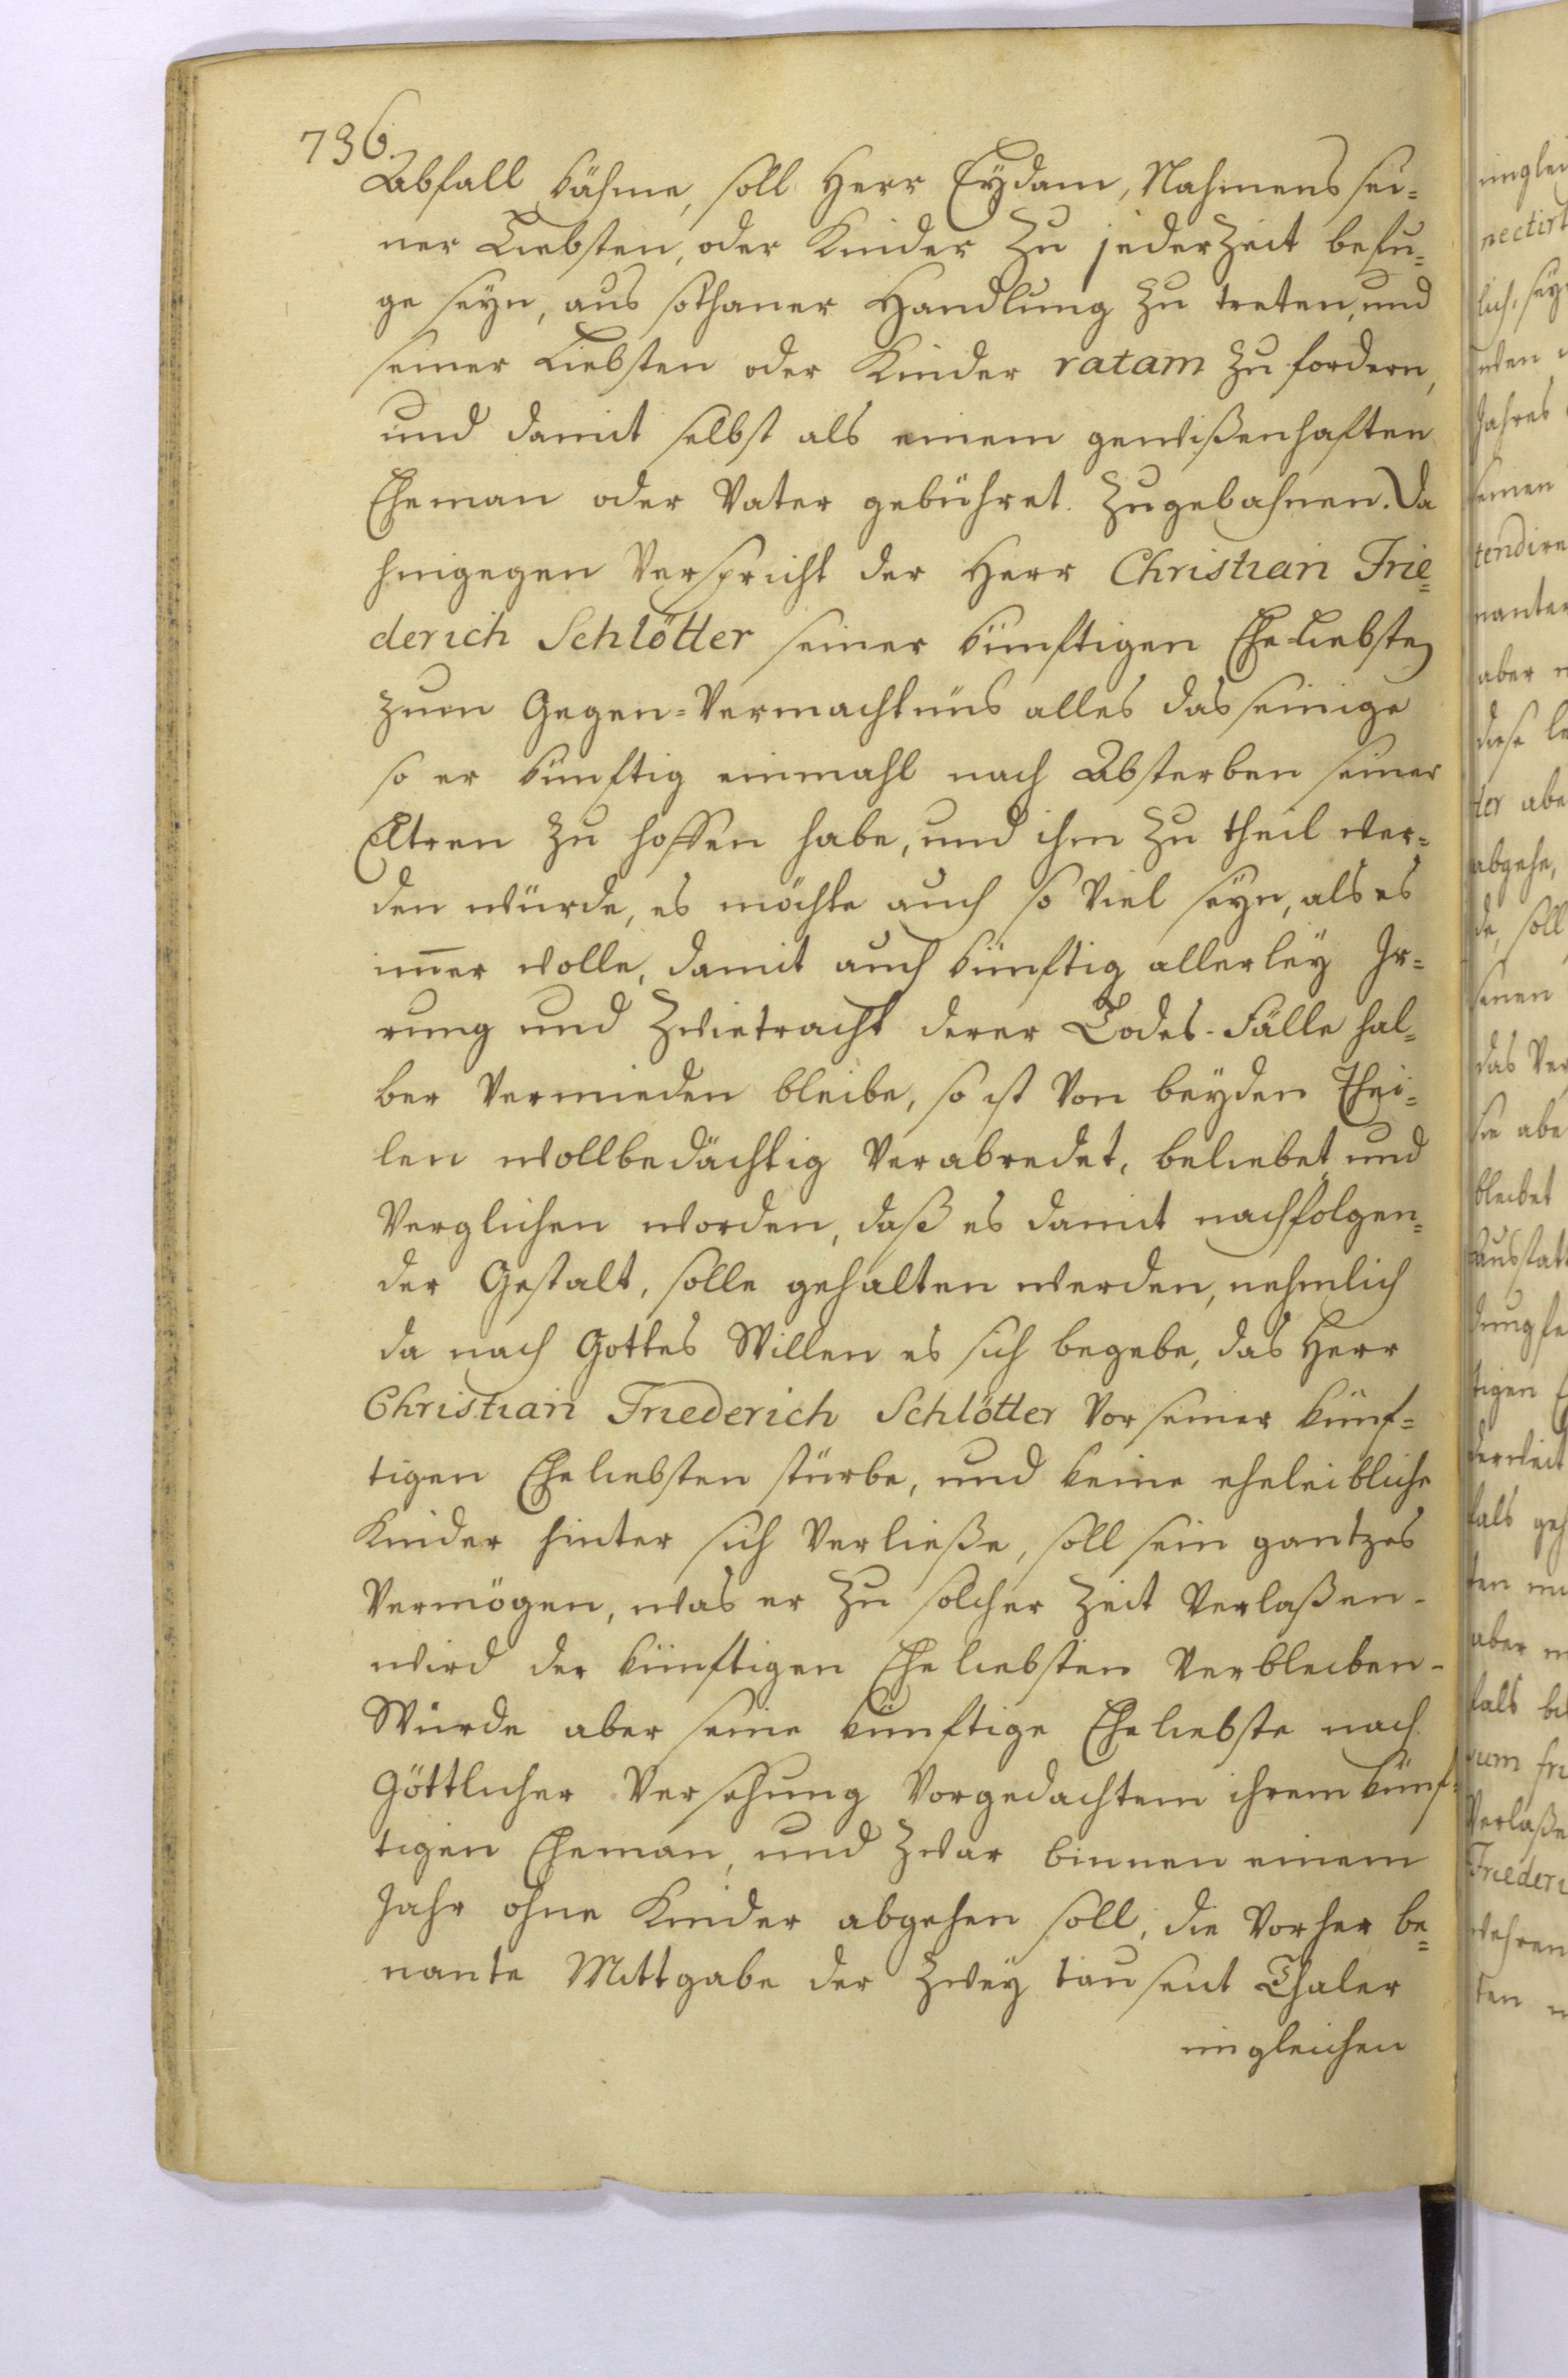 736.
Abfall kähme, soll Herr Eydam, Nahmens sei=
ner Liebsten, oder Kinder zu jederzeit befu=
ge seyn, aus sothaner Handlung zu treten, und
seiner Liebsten oder Kinder ratam zu fordern,
und damit selbst als einem gewißenhaften
Eheman oder Vater gebühret. zugebahnen. Da
hingegen Verspricht der Herr Christian Frie=
derich Schlötter seiner künftigen Ehe-Liebsten
zum Gegen=Vermachtnüs alles das seinige
so er künftig einmahl nach Absterben seiner
Eltren zu hoffen habe, und ihm zu theil wer=
den würde, es möchte auch so Viel seyn, als es
im̄er wolle, damit auch künftig allerley Ir=
rung und Zwietracht derer Todes-Fälle hal=
ber Vermieden bleibe, so ist Von beyden Thei=
len wollbedächtig Verabredet, beliebet und
Verglichen worden, daß es damit nachfolgen=
der Gestalt, solle gehalten werden, nehmlich
da nach Gottes Willen es sich begebe, das Herr
Christian Friederich Schlötter Vor seiner künf=
tigen Eheliebsten stürbe, und keine eheleibliche
Kinder hinter sich Verließe, soll sein gantzes
Vermögen, was er zu solcher Zeit Verlaßen-
wird der künftigen Eheliebsten Verbleiben-
Würde aber seine künftige Eheliebste nach
Göttlicher Versehung Vorgedachtem ihrem künf=
tigen Eheman, und zwar binnen einem
Jahr ohne Kinder abgehen soll, die Vorher be=
nante Mittgabe der Zwey tausent Thaler
imgleichen